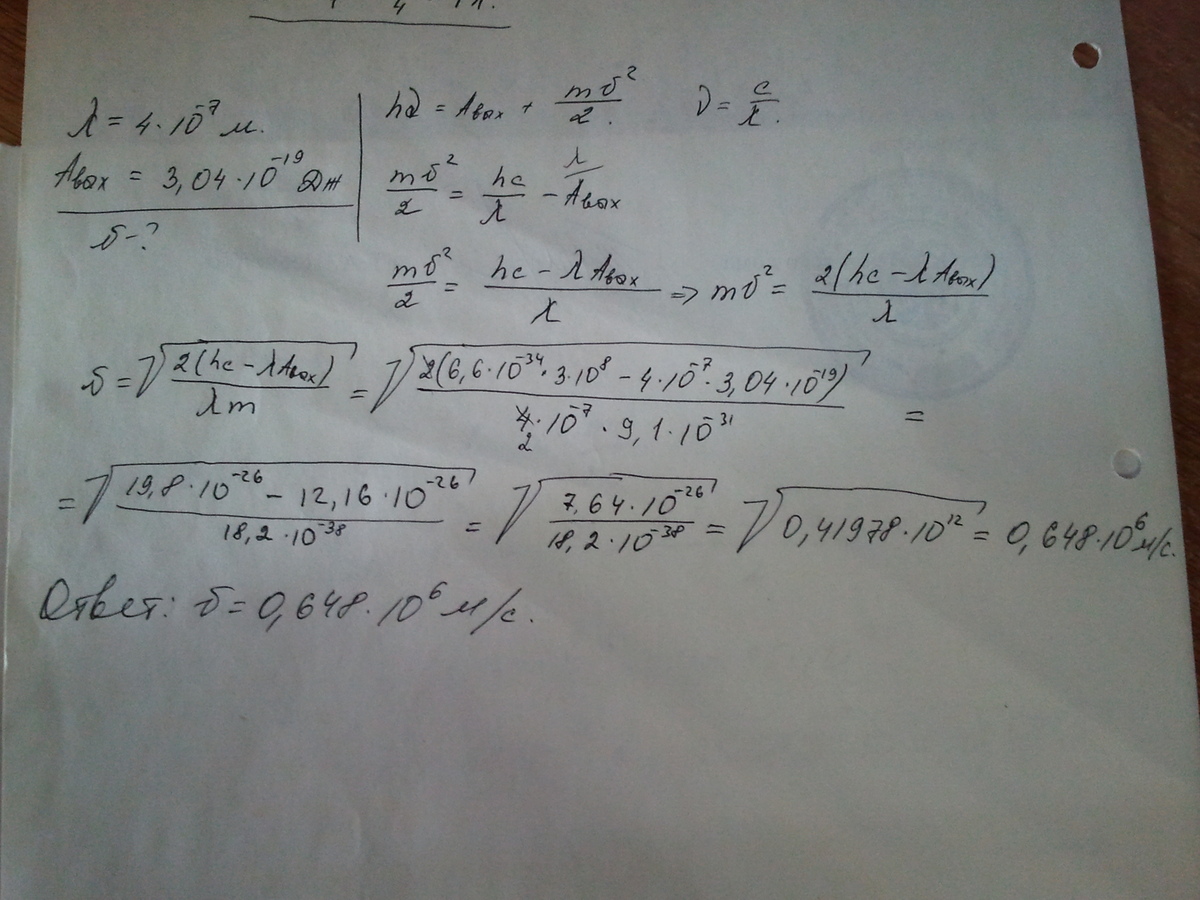 λ = 4·10⁻⁷ м.
Aвых = 3,04·10⁻¹⁹ Дж
υ-?
hν = Aвых + mυ²/2. ν = c/λ.
mυ²/2 = hc/λ - Aвых
mυ²/2 = (hc - λAвых)/λ => mυ² = 2(hc - λAвых)/λ
υ = √(2(hc - λAвых)/λm) = √(2(6,6·10⁻³⁴·3·10⁸ - 4·10⁻⁷·3,04·10⁻¹⁹)/4·10⁻⁷·9,1·10⁻³¹) =
2
= √((19,8·10⁻²⁶ - 12,16·10⁻²⁶)/18,2·10⁻³⁸) = √(7,64·10⁻²⁶/18,2·10⁻³⁸) = √(0,41978·10¹²) = 0,648·10⁶ м/с.
Ответ: υ = 0,648·10⁶ м/с.